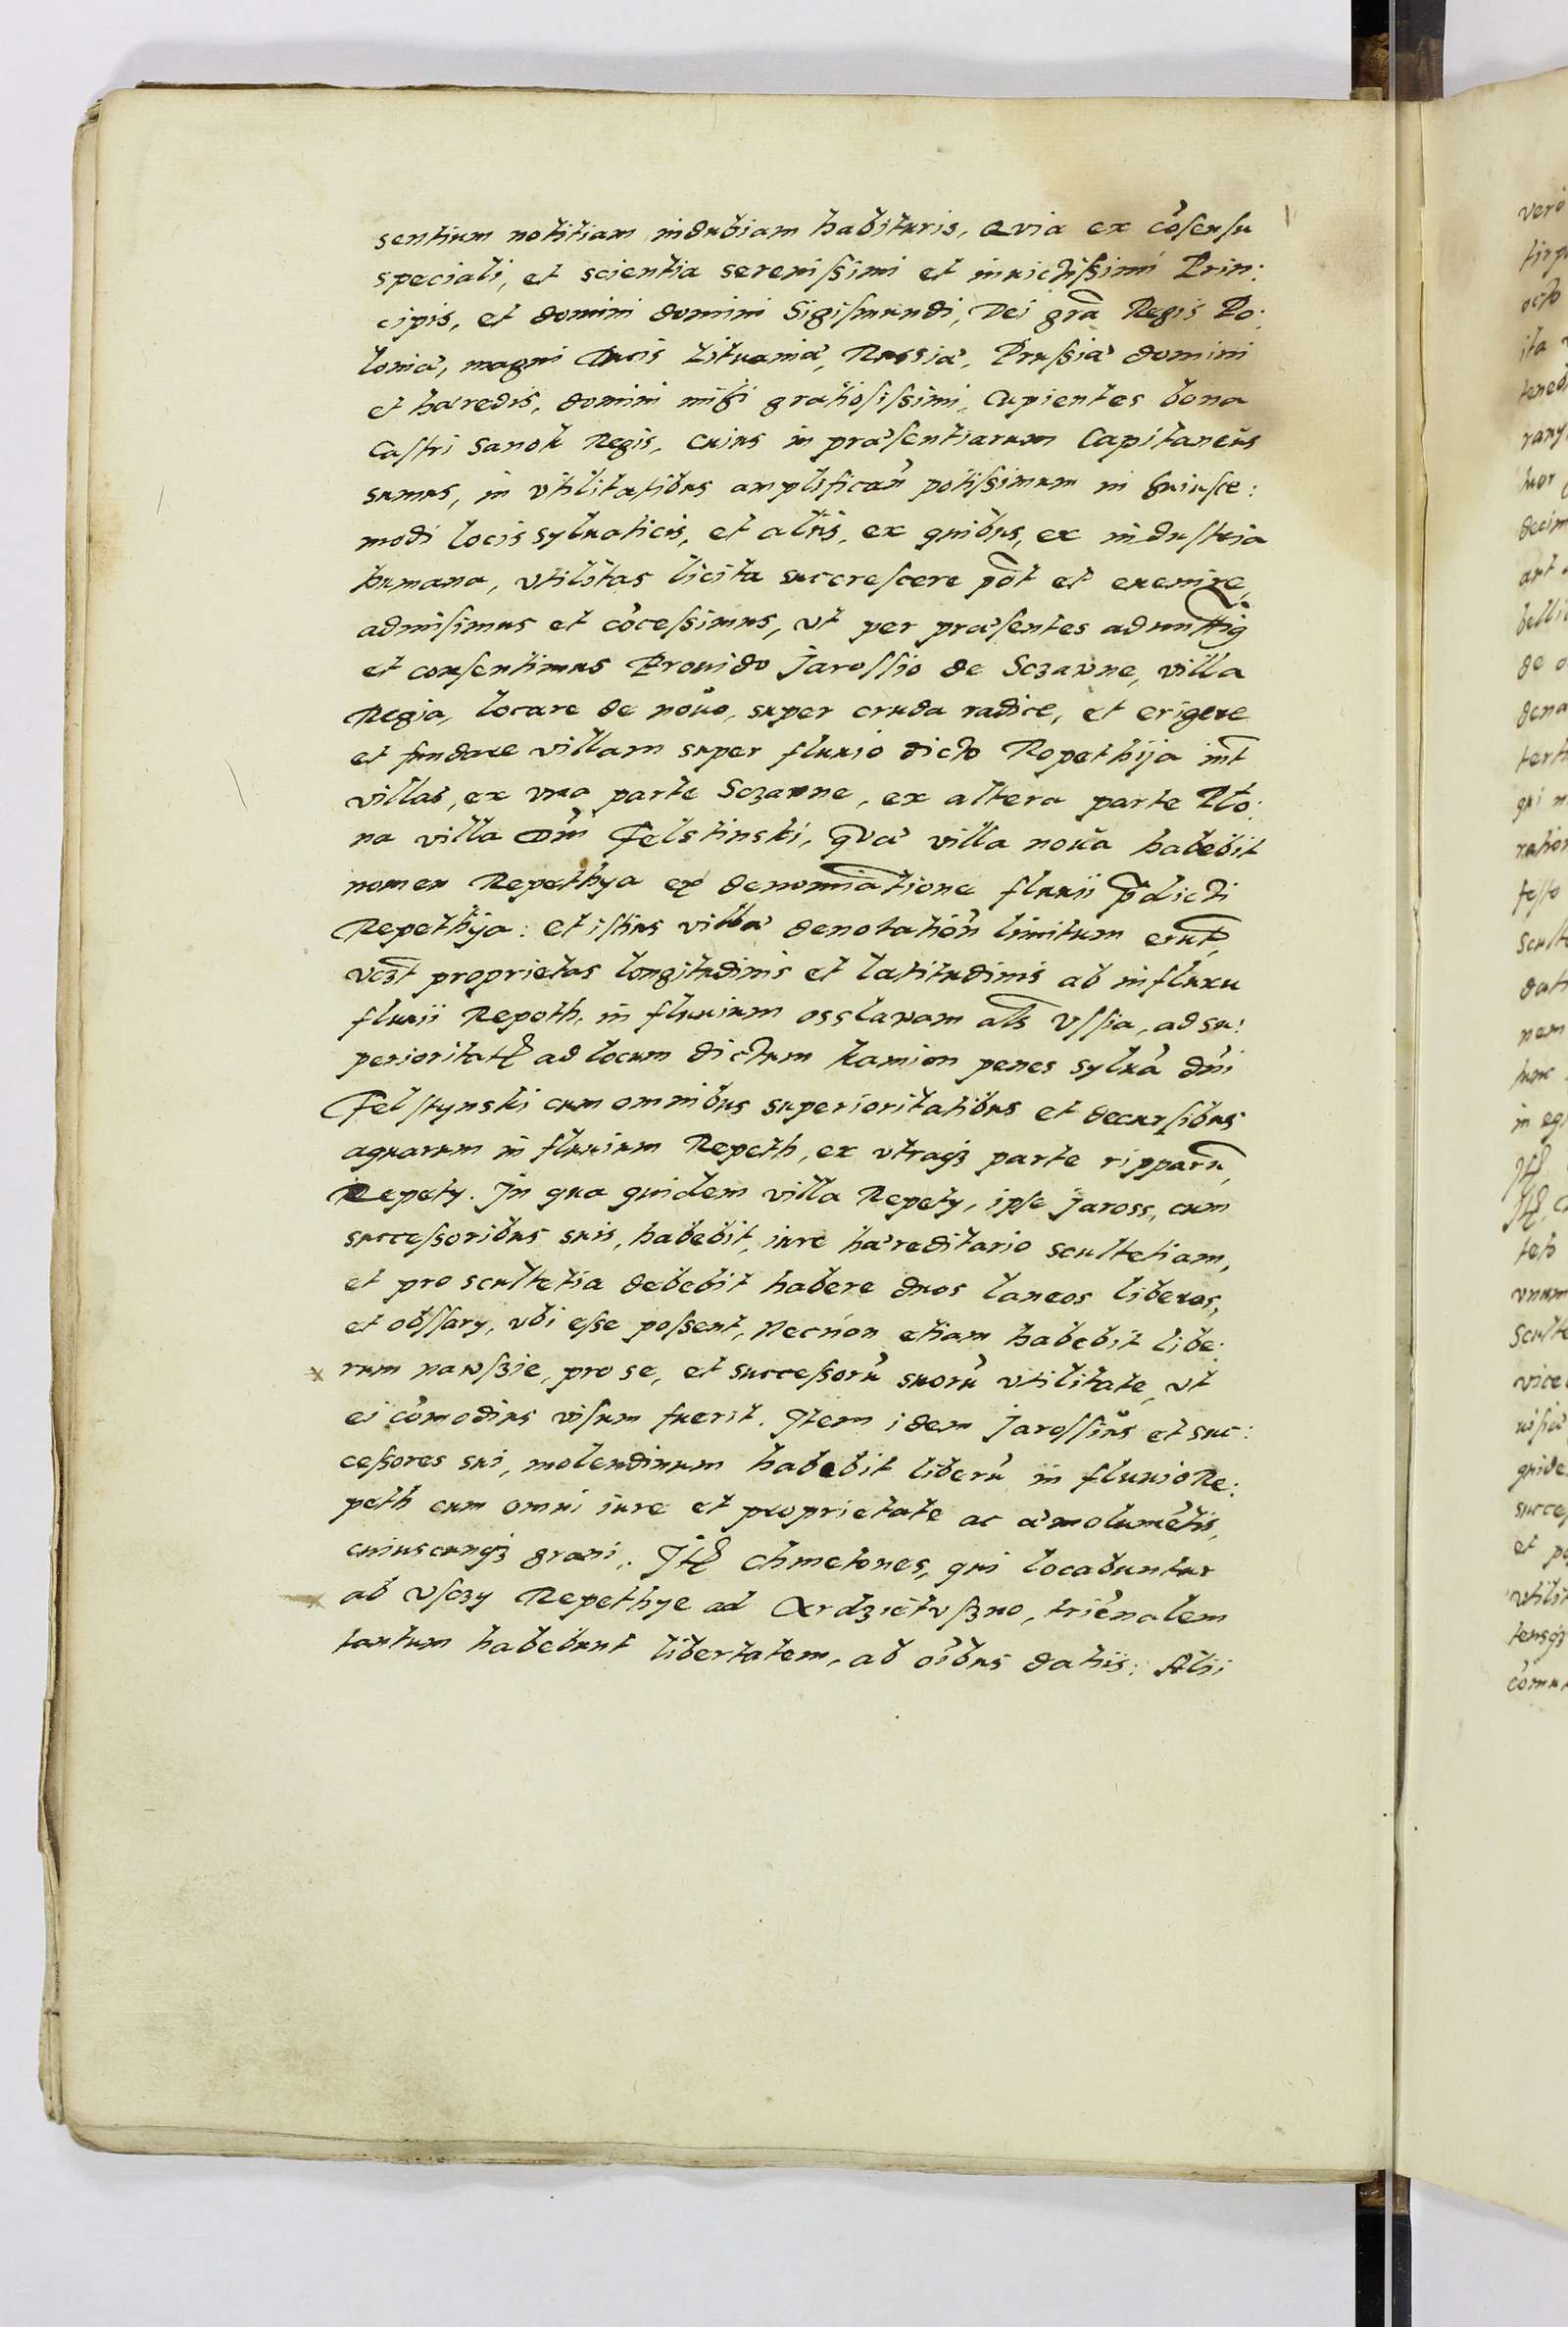 sentium notitiam indubiam habituris, Quia ex cõsensu
speciali, et scientia serenissimi et inuictissimi Prin:
cipis, et domini domini Sigismundi, Dei grã Regis Po:
loniæ, magni Ducis Lituaniæ, Russiæ, Prussiæ domini
et hæredis, domini mihi gratiosissimi, Cupientes bona
Castri Sanok Regis, cuius in præsentiarum Capitaneus
sumus, in vtilitatibus amplificañ potissimum in huiusce:
modi locis syluaticis, et aliis, ex quibus, ex industria
humana, vtilitas licita succrescere põt et euenire,
admisimus et cõcessimus, vt per præsentes admittig
et consentimus Prouido Jarossio de Sczawne, villa
Regia, locare de nouo, super cruda radice, et erigere
et fundare villam super fluuio dicto Ropethija int̃
villas, ex vna parte Sczawne, ex altera parte Plo:
na villa Dñi Felstinski, quæ villa noua habebit
nomen Repethya ex denomiãtione fluuii p̃dicti
Repethija: et istius villæ denotatioñ limitum erut̃,
vczt proprietas longitudinis et latitudinis ab influxu
fluuii Repeth, in fluuium osslawam als Vssia, ad su:
perioritatẽ ad locum dictum kamion penes syluã dñi
Felstynski cum omnibus superioritatibus et decursibus
aquarum in fluuium Repeth, ex vtraqз parte ripparũ,
Repety. In qua quidem villa Repety, ipse Jaross, cum
successoribus suis, habebit, iure hæreditario scultetiam,
et pro scultetia debebit habere duos laneos liberos,
et obssary, vbi esse possent, Necnon etiam habebit libe:
rum nawszie, pro se, et successorũ suorũ vtilitate, vt
ei cõmodius visum fuerit. Item idem Jarossius et suc:
cessores sui, molendinum habebit liberũ in fluuio Re:
peth cum omni iure et proprietate ac æmolumẽtis,
cuiuscunqз grani. Itẽ chmetones, qui locabuntur
ab vsczy Repethye ad triẽnalem
tantum habebunt libertatem, ab oĩbus datiis: Alii